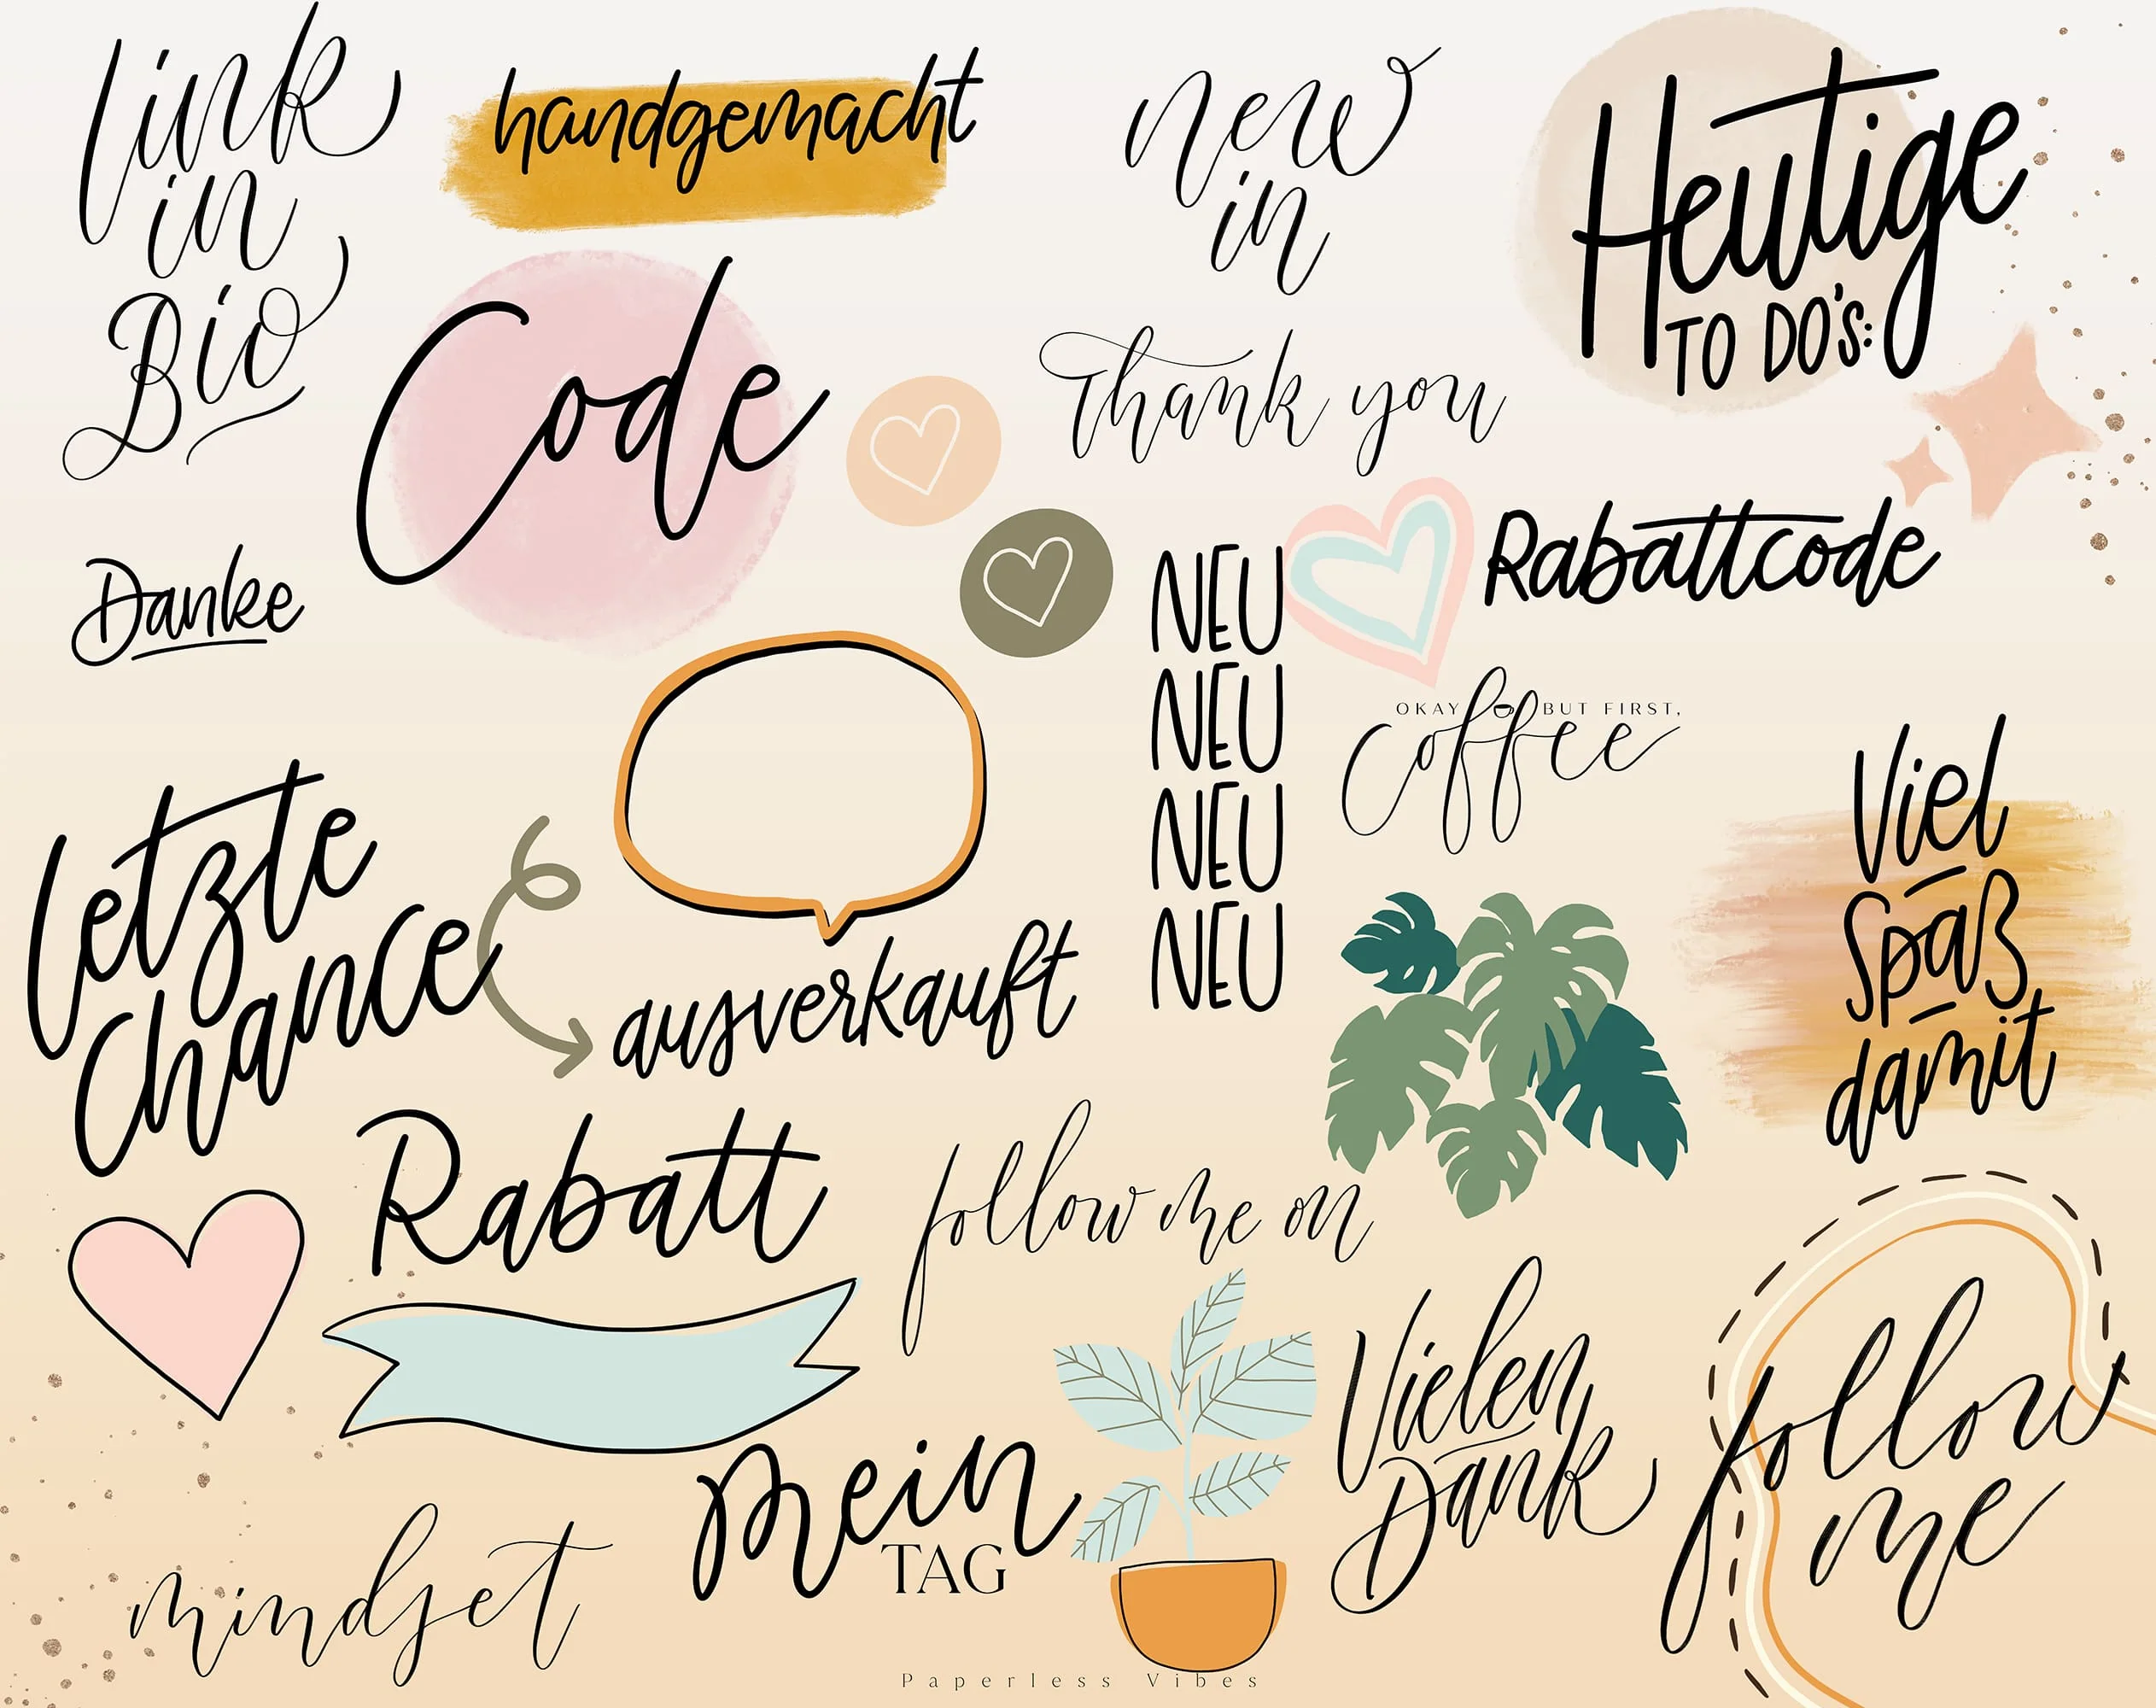 link
in
Bio
handgemacht
new
in
Heutige
TO DO'S:
Code
Thank you
Danke
Rabattcode
NEU
NEU
NEU
NEU
OKAY BUT FIRST,
coffee
Letzte
Chance
ausverkauft
Viel
Spaß
damit
Rabatt
follow me on
Vielen
Dank
follow
me
mein
TAG
mindset
Paperless Vibes